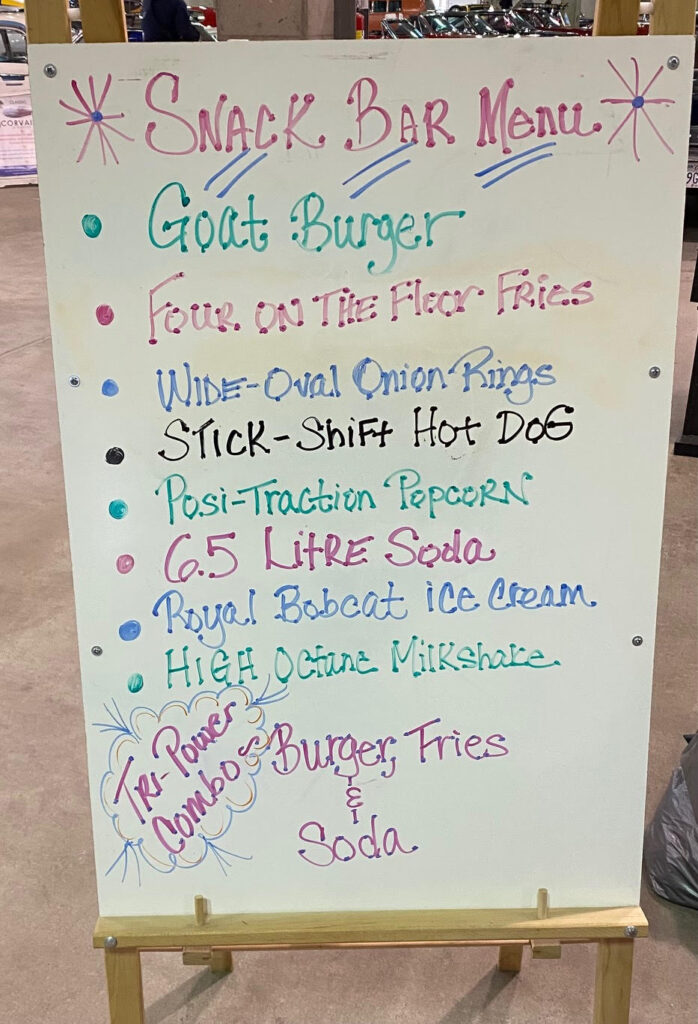 Snack Bar Menu
Goat Burger
Four on the Floor Fries
Wide-Oval Onion Rings
Stick-Shift Hot Dog
Posi-Traction Popcorn
6.5 Litre Soda
Royal Bobcat ice cream
High Octane Milkshake
Tri-Power
Combo
Burger, Fries
&
Soda
CLASSIC
CORVAI
9G